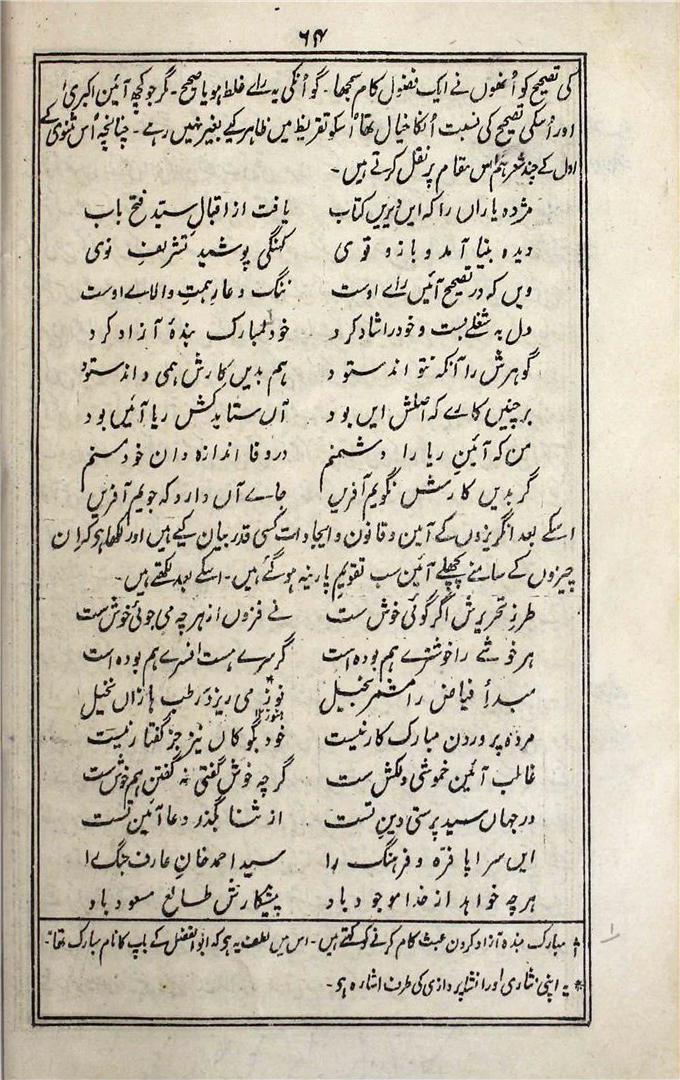 ۶۴
کی تصحیح کو اُنھوں نے ایک فضول کام سمجھا - گو اُنکی یہ راے غلط ہو یا صحیح - مگر جو کچھ آئین اکبری
اور اُسکی تصحیح کی نسبت اُنکا خیال تھا اُسکو تقریظ میں ظاہر کیے بغیر نہیں رہے - چنانچہ اُس مثنوی کے
اول کے چند شعر ہم اس مقام پر نقل کرتے ہیں -
مژدہ یاراں را کہ ایں دیریں کتاب یافت از اقبال سیّد فتح باب
دیدہ بینا آمد و بازو قوی کہنگی پوشید تشریفِ نوی
ویں کہ در تصحیح آئیں راے اوست ننگ و عارِ ہمتِ والاے اوست
دل بہ شغلے بست و خود را شاد کرد خود مبارک بندۂ آزاد کرد
گوہرش را آنکہ نتواند ستود ہم بدیں کارش ہمی داند ستود
بر چنیں کارے کہ اصلش ایں بود آں ستاید کش ریا آئیں بود
من کہ آئینِ ریا را دشمنم در وفا اندازہ دانِ خود منم
گر بدیں کارش نگویم آفریں جاے آں دارد کہ جویم آفریں
اسکے بعد انگریزوں کے آئین و قانون و ایجادات کسی قدر بیان کیے ہیں اور لکھا ہی کہ ان
چیزوں کے سامنے پچھلے آئین سب تقویمِ پارینہ ہو گئے ہیں - اسکے بعد لکھتے ہیں -
طرزِ تحریرش اگر گوئی خوش ست نے فزوں از ہر چہ می جوئی خوش ست
ہر خوشے را خوشترے ہم بودہ است گر سرے ہست افسرے ہم بودہ است
مبدأِ فیاض را مشمر بخیل نوز می ریزد رطب ہا زاں نخیل
مردہ پروردن مبارک کار نیست خود بگو کاں نیز جز گفتار نیست
غالب آئینِ خموشی دلکش ست گرچہ خوش گفتی نہ گفتن ہم خوش ست
در جہاں سید پرستی دینِ تست از ثنا بگذر دعا آئینِ تست
ایں سراپا فرّہ و فرہنگ را سید احمد خانِ عارف جنگ را
ہر چہ خواہد از خدا موجود باد پیشکارش طالع مسعود باد
مبارک بندہ آزاد کردن عبث کام کرنے کو کہتے ہیں - اس میں لطف یہ ہو کہ ابوالفضل کے باپ کا نام مبارک تھا -
* یہ اپنی نثاری اور انشا پردازی کی طرف اشارہ ہو -